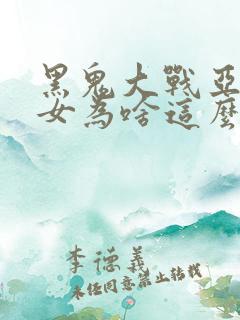 黑鬼大戰亞
女為啥這麼
李德義
未经同意禁止转载